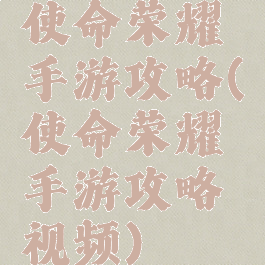 使命荣耀
手游攻略(
使命荣耀
手游攻略
视频)